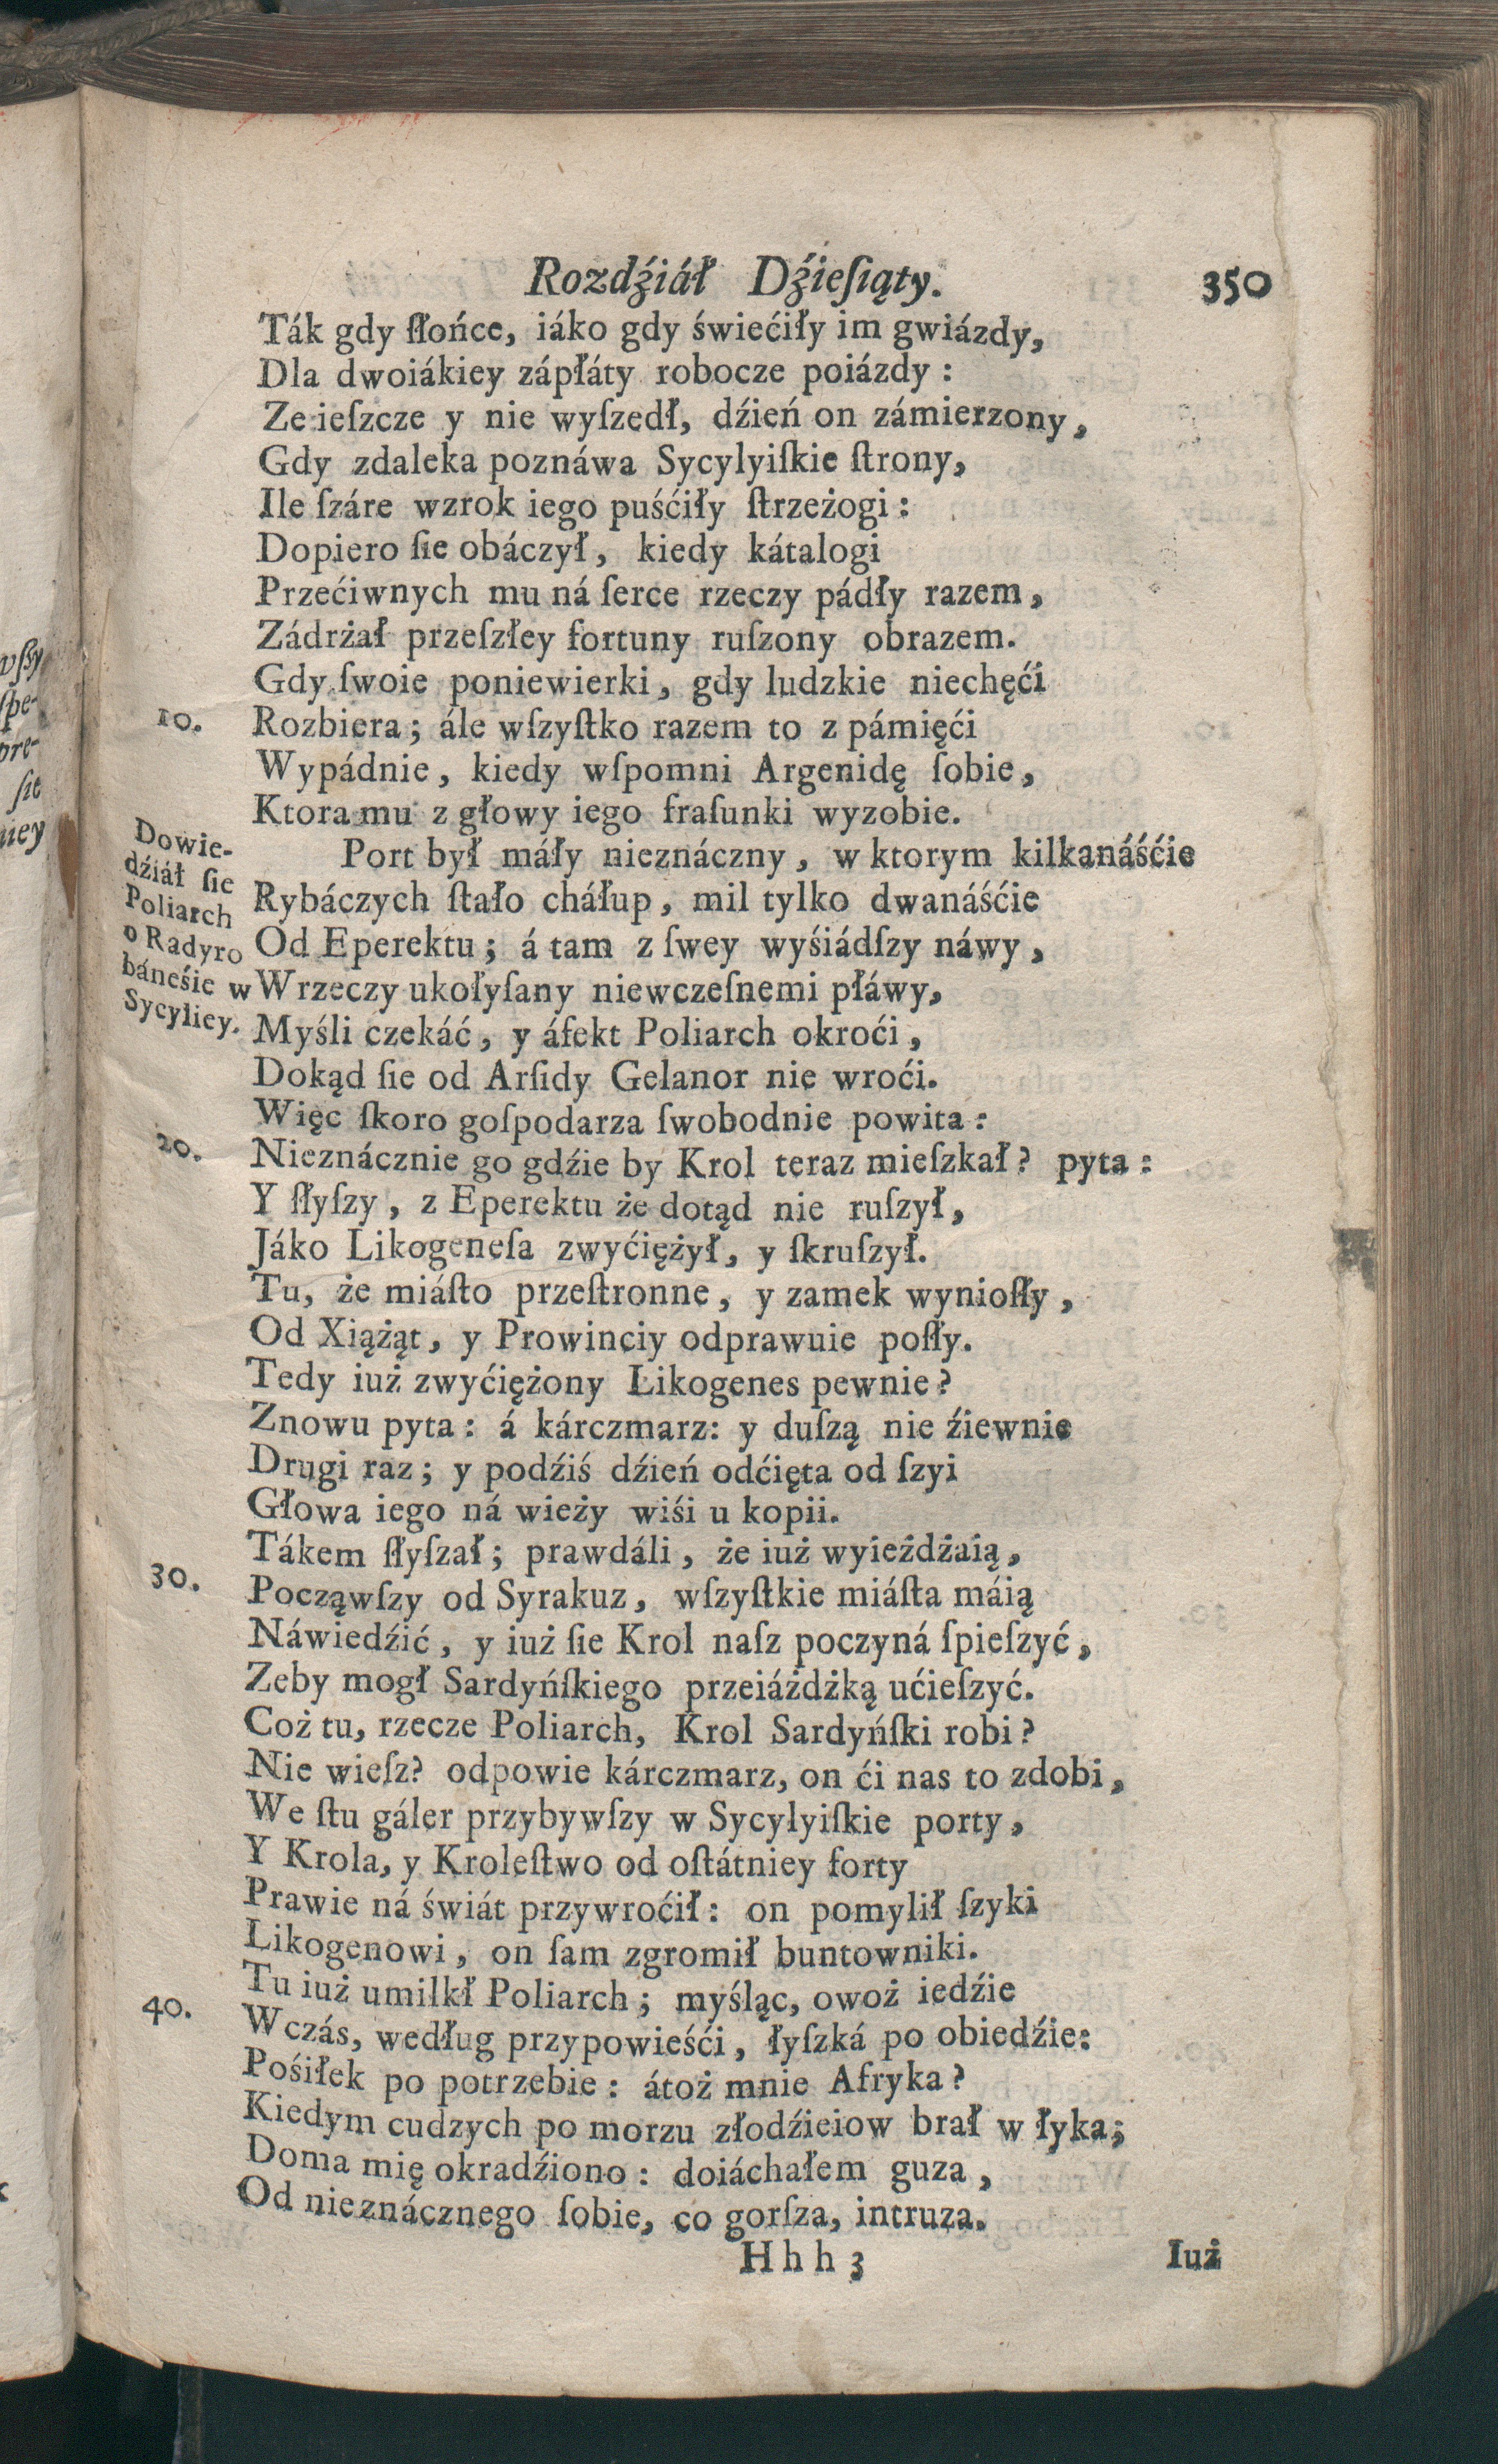 Rozdźiáł Dźieſiąty. 350
Ták gdy ſłońce, iáko gdy świećiły im gwiázdy,
Dla dwoiákiey zápłáty robocze poiázdy :
Ze ieſzcze y nie wyſzedł, dźień on zámierzony,
Gdy zdaleka poznáwa Sycylyiſkie ſtrony,
Ile ſzáre wzrok iego puśćiły ſtrzeżogi :
Dopiero ſie obáczył, kiedy kátalogi
Przećiwnych mu ná ſerce rzeczy pádły razem,
Zádrżał przeſzłey fortuny ruſzony obrazem.
Gdy ſwoie poniewierki, gdy ludzkie niechęći
10. Rozbiera; ále wſzyſtko razem to z pámięći
Wypádnie, kiedy wſpomni Argenidę ſobie,
Ktora mu z głowy iego fraſunki wyzobie.
Dowie-
dźiáł ſie
Poliarch
o Radyro
báneśie w
Sycyliey.
Port był máły nieznáczny, w ktorym kilkanáśćie
Rybáczych ſtało cháłup, mil tylko dwanáśćie
Od Eperektu; á tam z ſwey wyśiádſzy náwy,
W rzeczy ukołyſany niewczeſnemi płáwy,
Myśli czekáć, y áfekt Poliarch okroći,
Dokąd ſie od Arſidy Gelanor nie wroći.
Więc ſkoro goſpodarza ſwobodnie powita :
20. Nieznácznie go gdźie by Krol teraz mieſzkał? pyta :
Y ſłyſzy, z Eperektu że dotąd nie ruſzył,
Jáko Likogeneſa zwyćiężył, y ſkruſzył.
Tu, że miáſto przeſtronne, y zamek wynioſły,
Od Xiążąt, y Prowinciy odprawuie poſły.
Tedy iuż zwyćiężony Likogenes pewnie?
Znowu pyta : á kárczmarz: y duſzą nie źiewnie
Drugi raz; y podźiś dźień odćięta od ſzyi
Głowa iego ná wieży wiśi u kopii.
Tákem ſłyſzał; prawdáli, że iuż wyieżdżaią,
30. Począwſzy od Syrakuz, wſzyſtkie miáſta máią
Náwiedźić, y iuż ſie Krol naſz poczyná ſpieſzyć,
Zeby mogł Sardyńſkiego przeiáżdżką ućieſzyć.
Coż tu, rzecze Poliarch, Krol Sardyńſki robi?
Nie wieſz? odpowie kárczmarz, on ći nas to zdobi,
We ſtu gáler przybywſzy w Sycylyiſkie porty,
Y Krola, y Kroleſtwo od oſtátniey forty
Prawie ná świát przywroćił : on pomylił ſzyki
Likogenowi, on ſam zgromił buntowniki.
Tu iuż umilkł Poliarch; myśląc, owoż iedźie
40. Wczás, według przypowieśći, łyſzká po obiedźie:
Pośiłek po potrzebie : átoż mnie Afryka?
Kiedym cudzych po morzu złodźieiow brał w łyka;
Doma mię okradźiono : doiáchałem guza,
Od nieznácznego ſobie, co gorſza, intruza.
Hhh 3 Iuż